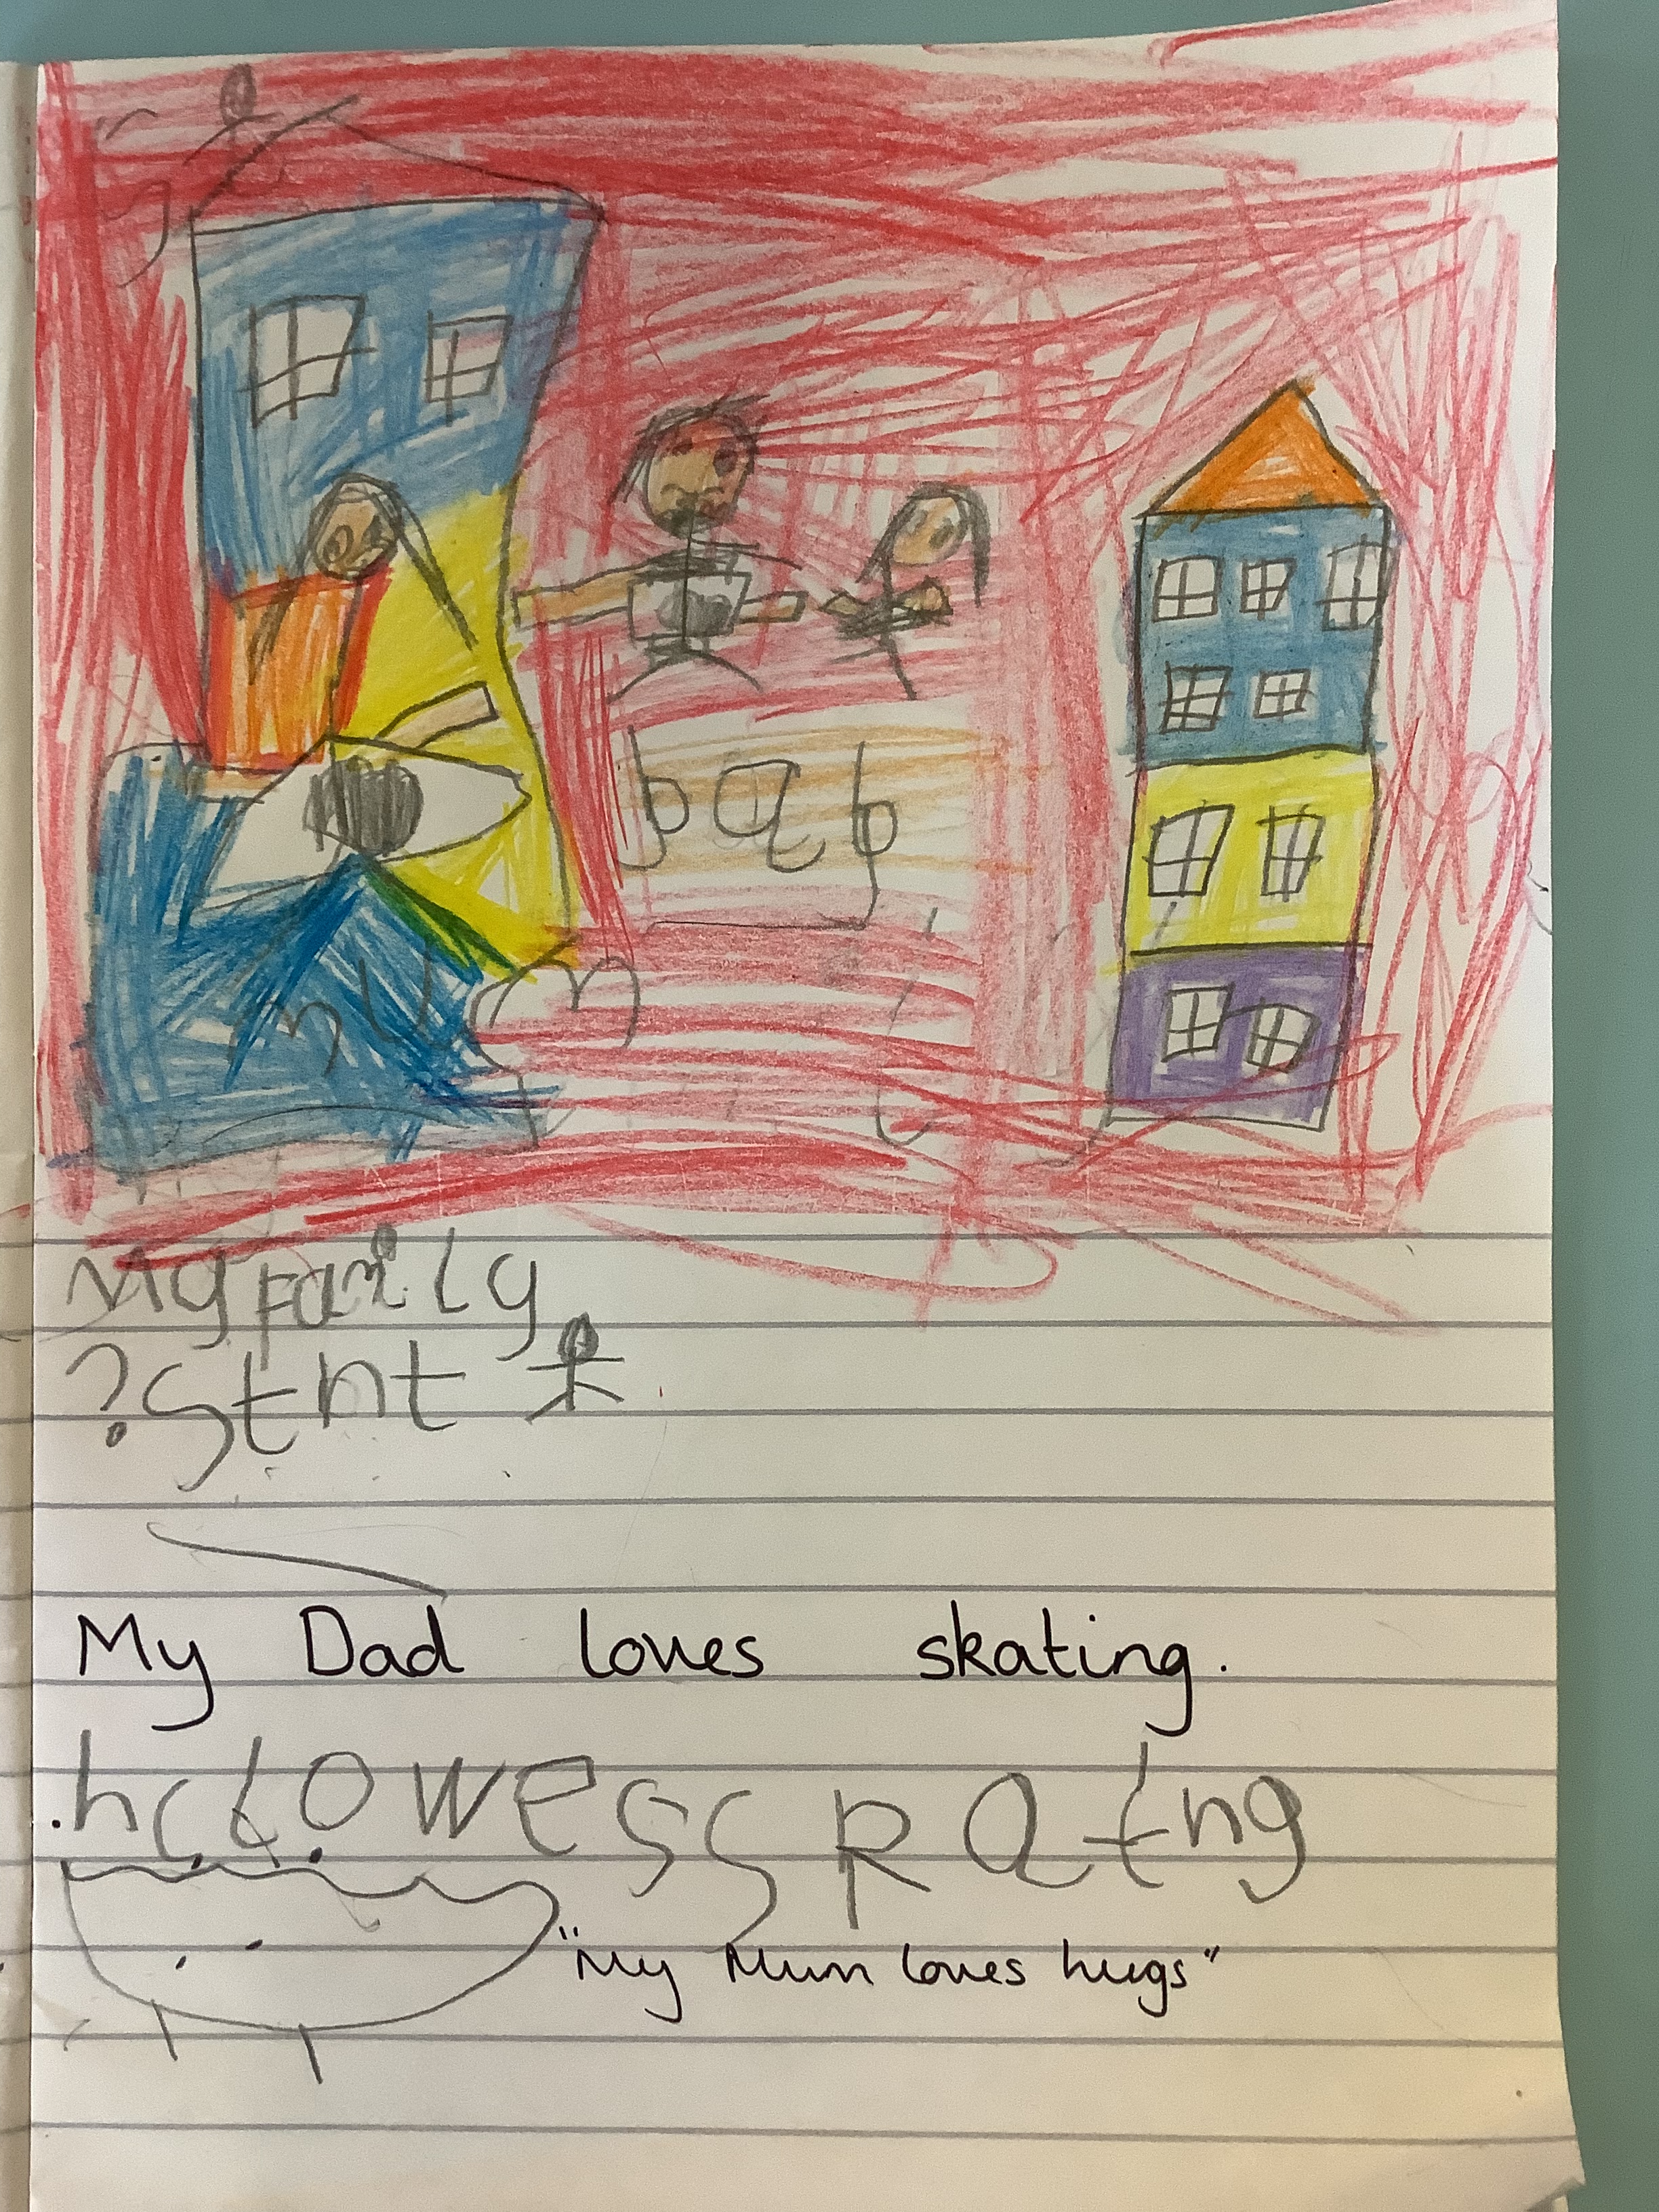 bab
mum
My family
? Stnt
My Dad loves skating.
.hcLowesspating
"My Mum loves hugs"